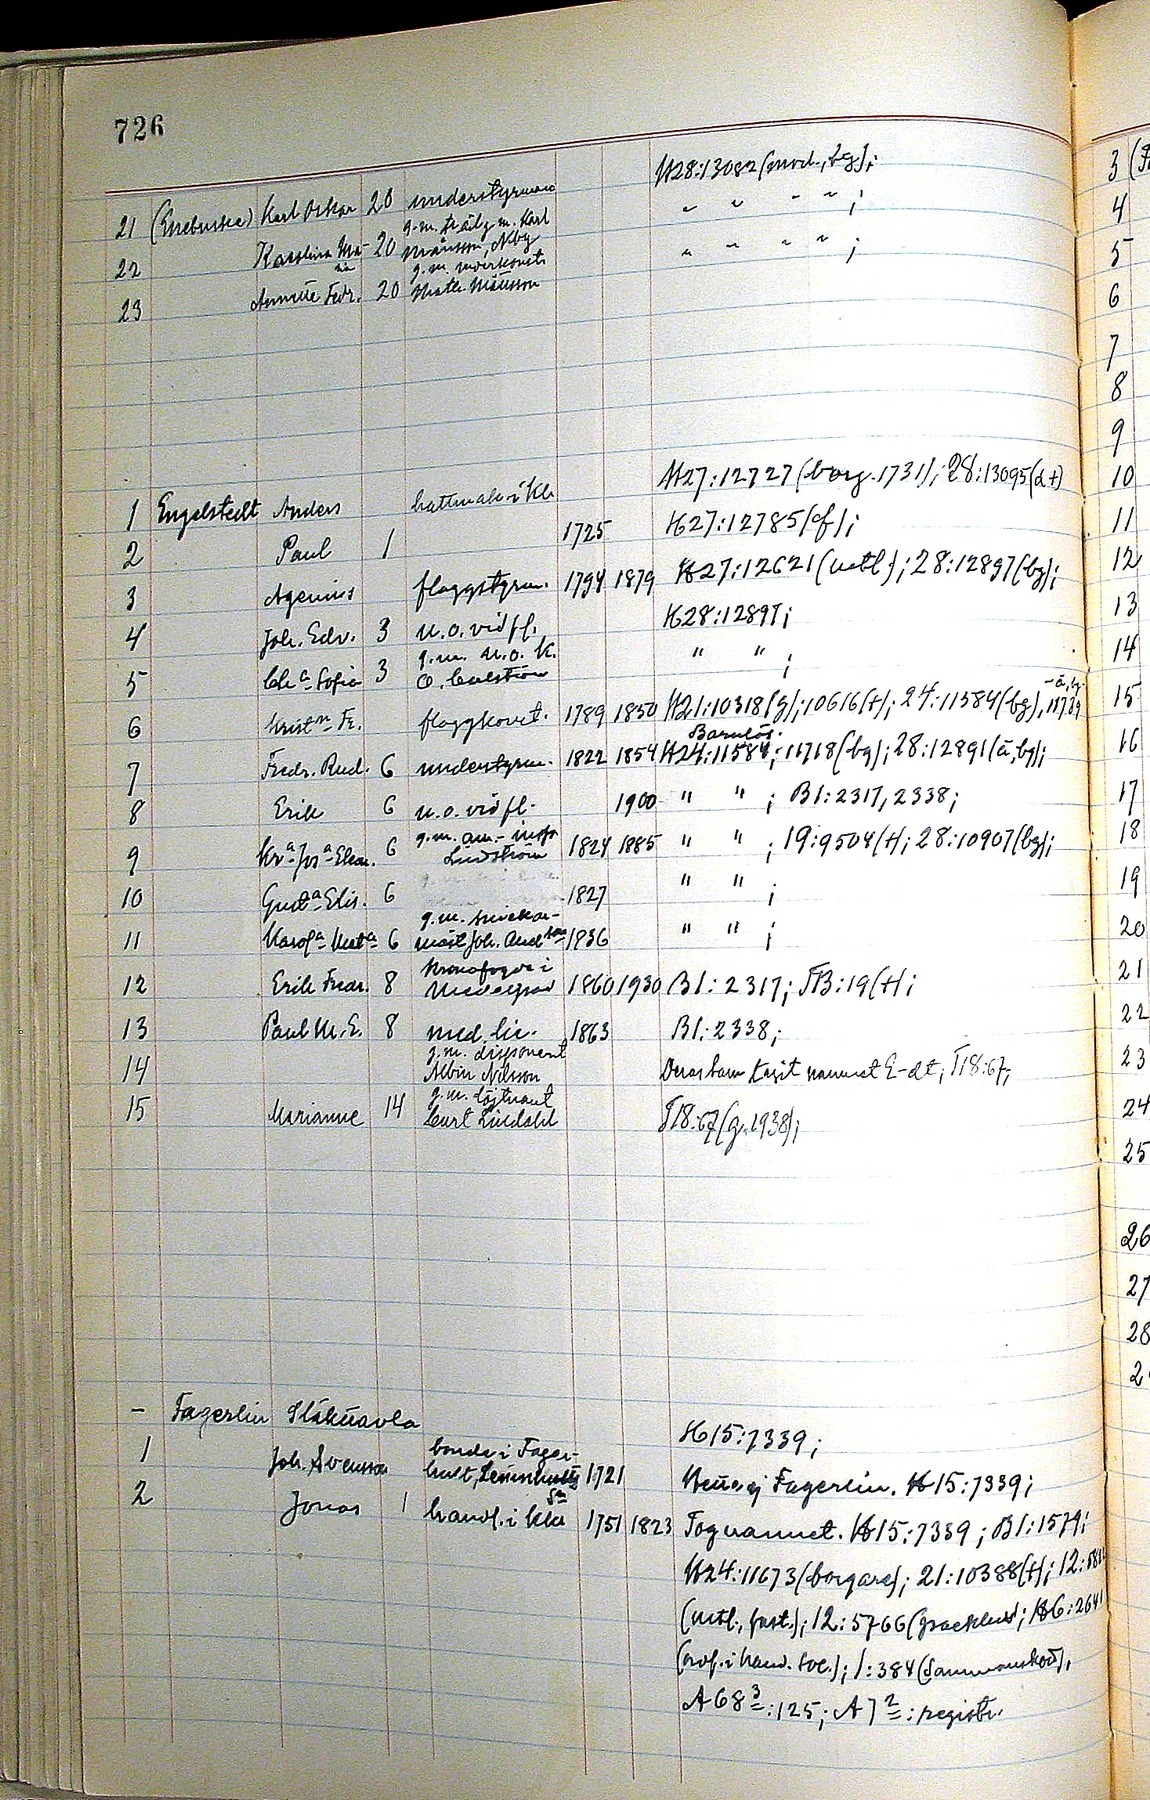 726
H28:13082 (mod., bg);
21 (Enebuske) Karl Oskar 20 understyrman " " " " ;
22 Karolina Ma- 20 g.m. trädg.m. Karl
ria Månsson, Nbg " " " " ;
23 Annette Fedr. 20 g.m.
Månsson
1 Engelstedt Anders hattmak. i Kla H27:12727 (borg. 1731); 28:13095 (d +)
2 Paul 1 1725 H27:12785 (f);
3 Agenius flaggstyrm. 1794 1879 H27:12621 (uttl.); 28:12897 (bg);
4 Joh. Edv. 3 u.o. vid fl. H28:12897;
5 Sofia 3 g.m. u.o. K.
O. " " ;
6 Fr. flaggkonst. 1789 1850 H21:10318 (g); 10616 (+); 24:11584 (bg),
Barnlös.
7 Fredr. Rud. 6 understyrm. 1822 1854 H24:11584; 11718 (bg); 28:12891 (ä, bg);
8 Erik 6 u.o. vid fl. 1900 " " ; B1:2317, 2338;
9 6 g.m.
Lindström 1824 1885 " " ; 19:9504 (+); 28:10907 (bg);
10 Gustª Elis. 6 1827 " " ;
11 Karolª 6 g.m. snickar-
mäst. Joh. Andsson 1836 " " ;
12 Erik Fredr. 8 Kronofogde i
1860 1930 B1:2317; TB:19 (+);
13 Paul M.E. 8 med. lic. 1863 B1:2338;
14 g.m. disponent
Albin Nilsson Deras barn tagit namnet E-dt, T18:67;
15 Marianne 14 g.m. löjtnant
Curt Lindahl T18:67 (g. 1938);
- Fagerlin Släkttavla H15:7339;
1 Joh. Svensson bonde i Fager-
hult, 1721 Hette ej Fagerlin. H15:7339;
2 Jonas 1 handl. i Kla 1751 1823 Tog namnet. H15:7339; B1:1579;
H24:11673 (borgare); 21:10388 (+); 12:
(uttl., fast.); 12:5766 ; H6:2641
(ord. i hand. soc.); 1:384 ,
A 68³:125; A 7²: registr.
3
4
5
6
7
8
9
10
11
12
13
14
15
16
17
18
19
20
21
22
23
24
25
26
27
28